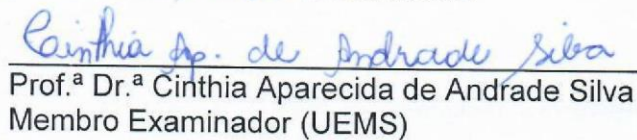 Cinthia Ap. de Andrade Silva
Prof.ª Dr.ª Cinthia Aparecida de Andrade Silva
Membro Examinador (UEMS)